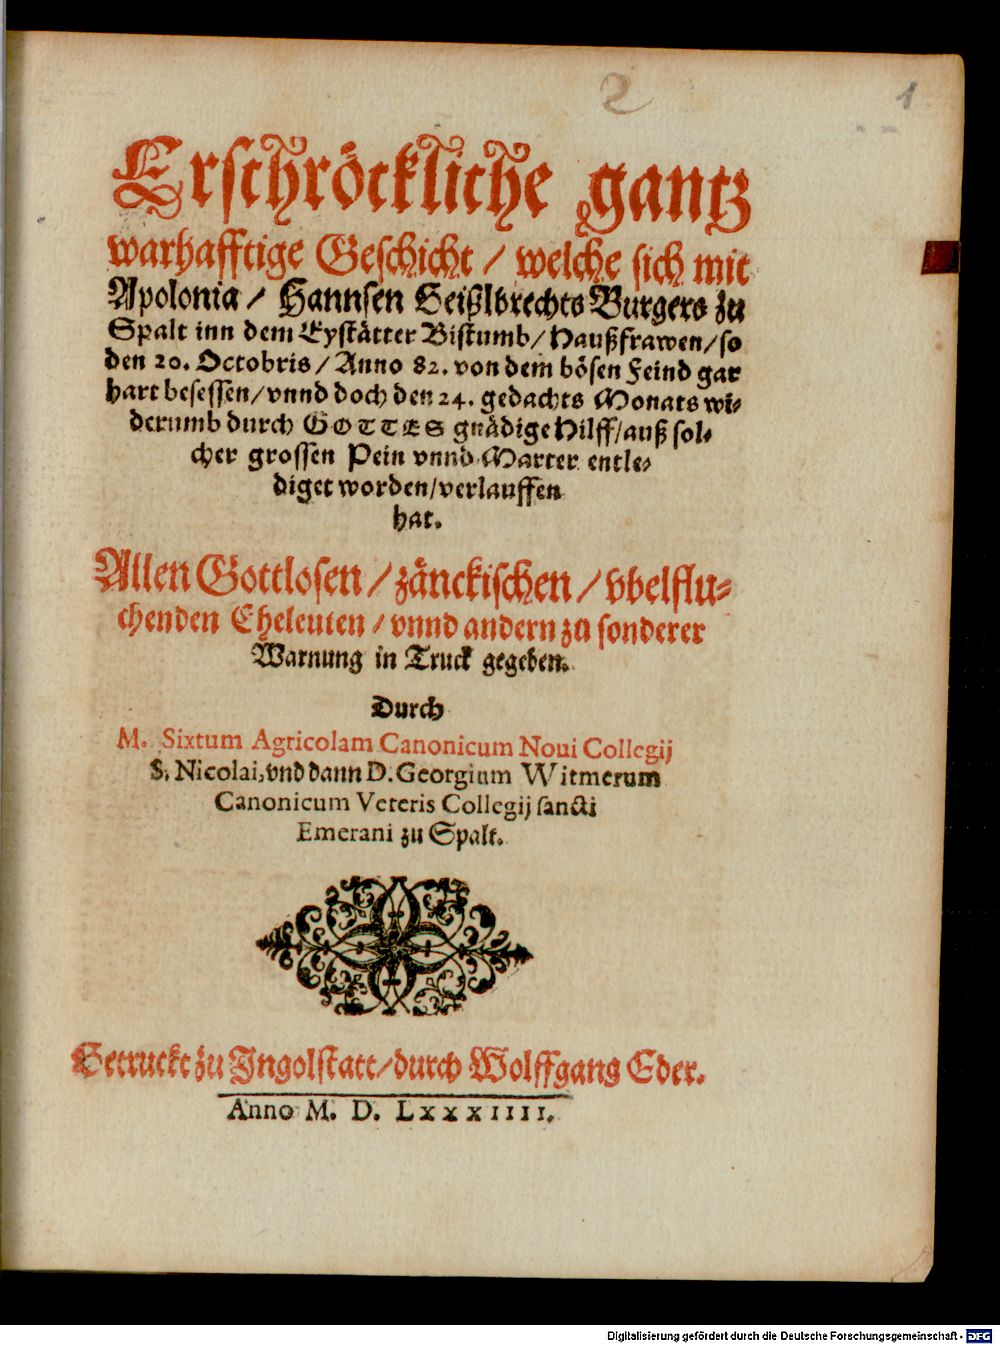 2
1
Erschröckliche gantz
warhafftige Geschicht / welche sich mit
Apolonia / Hannsen Geißlbrechts Burgers zu
Spalt inn dem Eystätter Bistumb / Haußfrawen / so
den 20. Octobris / Anno 82. von dem bösen Feind gar
hart besessen / vnnd doch den 24. gedachts Monats wi-
derumb durch GOTTES gnädige Hilff / auß sol-
cher grossen Pein vnnd Marter entle-
diget worden / verlauffen
hat.
Allen Gottlosen / zänckischen / vbelflu-
chenden Eheleuten / vnnd andern zu sonderer
Warnung in Truck gegeben.
Durch
M. Sixtum Agricolam Canonicum Noui Collegij
S. Nicolai, vnd dann D. Georgium Witmerum
Canonicum Veteris Collegij sancti
Emerani zu Spalt.
Getruckt zu Ingolstatt / durch Wolffgang Eder.
Anno M. D. LXXXIIII.
Digitalisierung gefördert durch die Deutsche Forschungsgemeinschaft - DFG